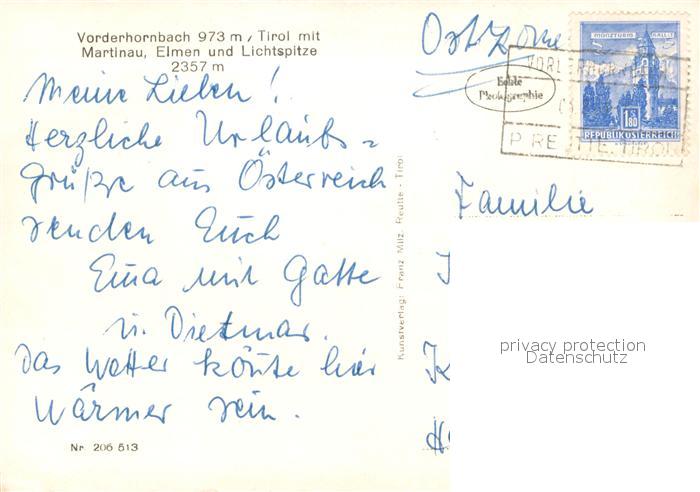 Vorderhornbach 973 m / Tirol mit
Martinau, Elmen und Lichtspitze
2357 m
Meine Lieben!
Herzliche Urlaubs=
grüße aus Österreich
senden Euch
Erna mit Gatte
u. Dietmar.
Das Wetter könte hier
wärmer sein.
Nr. 206 513
Kunstverlag: Franz Milz, Reutte - Tirol
Ostzone
Echte
Photographie
MÜNZTURM HALL I.T.
1.80
REPUBLIK ÖSTERREICH
Familie
privacy protection
Datenschutz